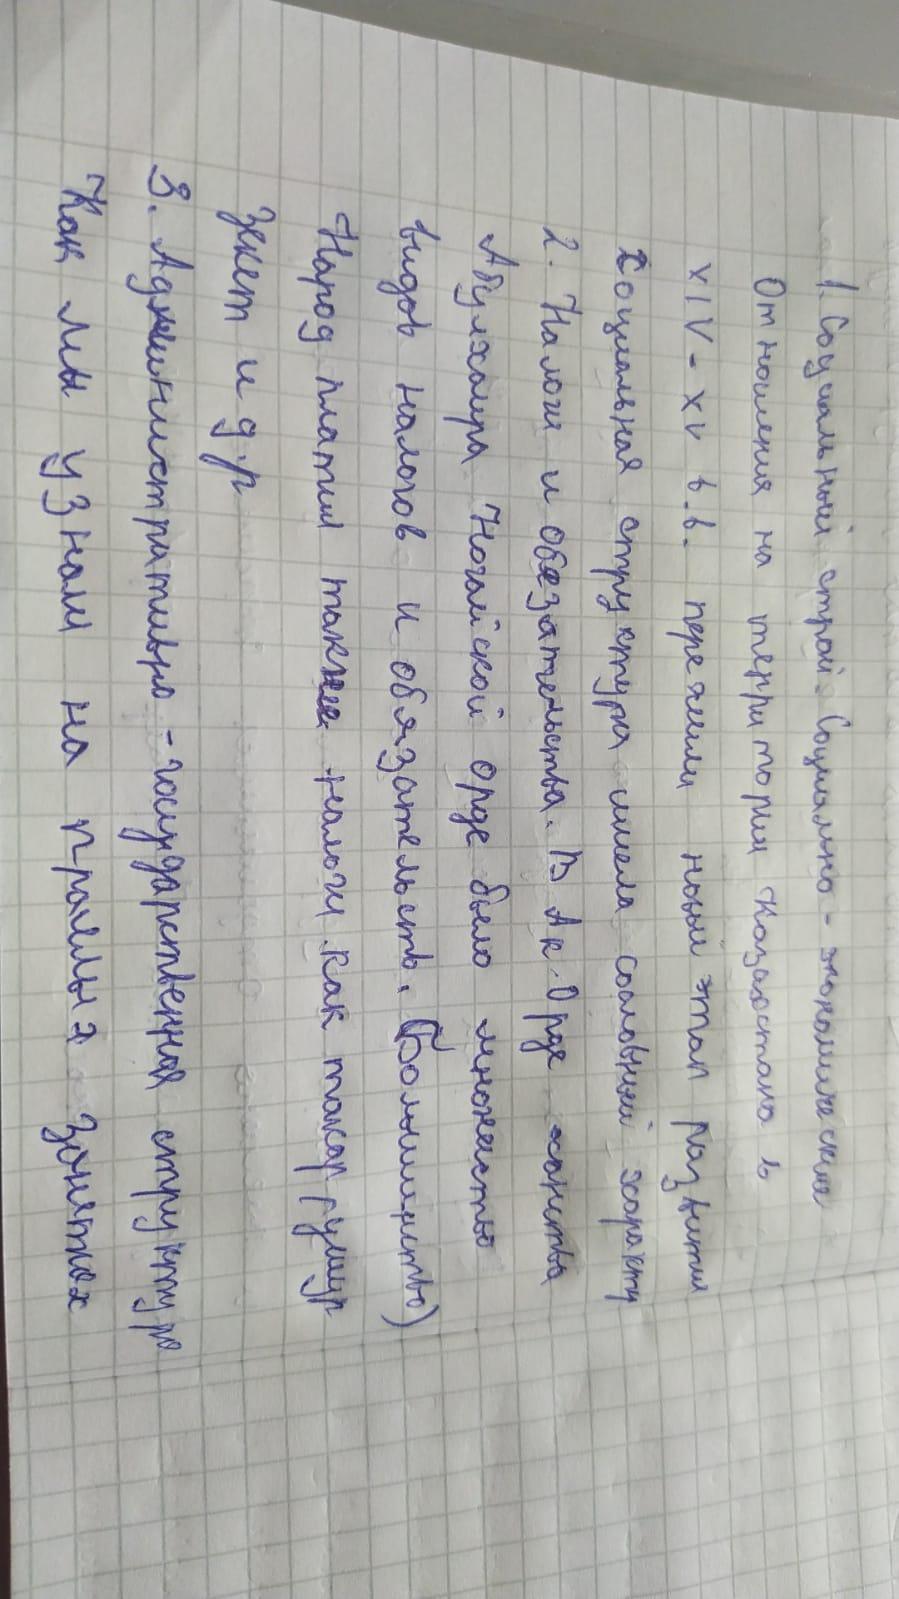 1. Социальный строй. Социально-экономические
Отношения на территории Казахстана в
XIV-XV в.в. пережили новый этап развития
Социальная структура имела сословный характер
2. Налоги и обязательства. В Ак-Орде ханства
Абулхаира Ногайской орде было множество
видов налогов и обязательств. (Большинство)
Народ платил также налоги как тагар, ушур
Зекет и д.р
3. Административно-государственная структура
Как мы узнали на прошлых занятиях